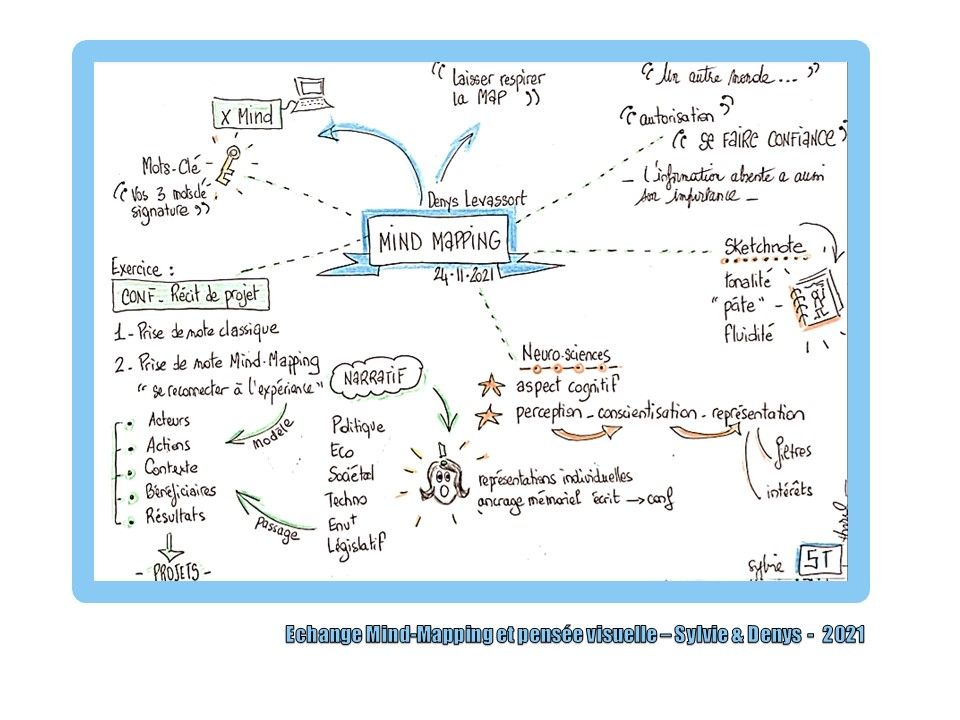 « Laisser respirer
la MAP »
« Un autre monde... »
« autorisation »
« SE FAIRE CONFIANCE »
- l'information absente a aussi
son importance -
X Mind
Mots-Clé
« Vos 3 mots de
signature »
Denys Levassort
MIND MAPPING
24.11.2021
Sketchnote
tonalité
"pâte" -
fluidité
Exercice :
CONF - Récit de projet
1 - Prise de note classique
2 - Prise de note Mind-Mapping
" se reconnecter à l'expérience "
modèle
Acteurs
Actions
Contexte
Bénéficiaires
Résultats
- PROJETS -
NARRATIF
Politique
Eco
Sociétal
Techno
Envt
Législatif
passage
Neuro-sciences
aspect cognitif
perception - conscientisation - représentation
filtres
intérêts
représentations individuelles
ancrage mémoriel écrit → conf
sylvie
ST
Echange Mind-Mapping et pensée visuelle – Sylvie & Denys - 2021